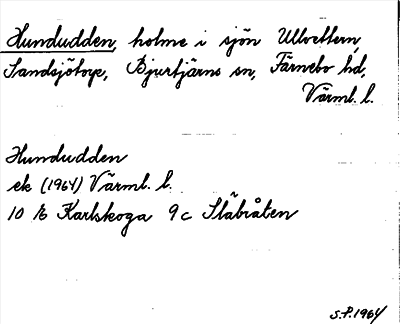 Hundudden, holme i sjön Ullvettern,
Sandsjötorp, Bjurtjärns sn, Färnebo hd,
Värml. l.
Hundudden
ek (1964) Värml. l.
10 E Karlskoga 9 c Släbråten
S.P. 1964